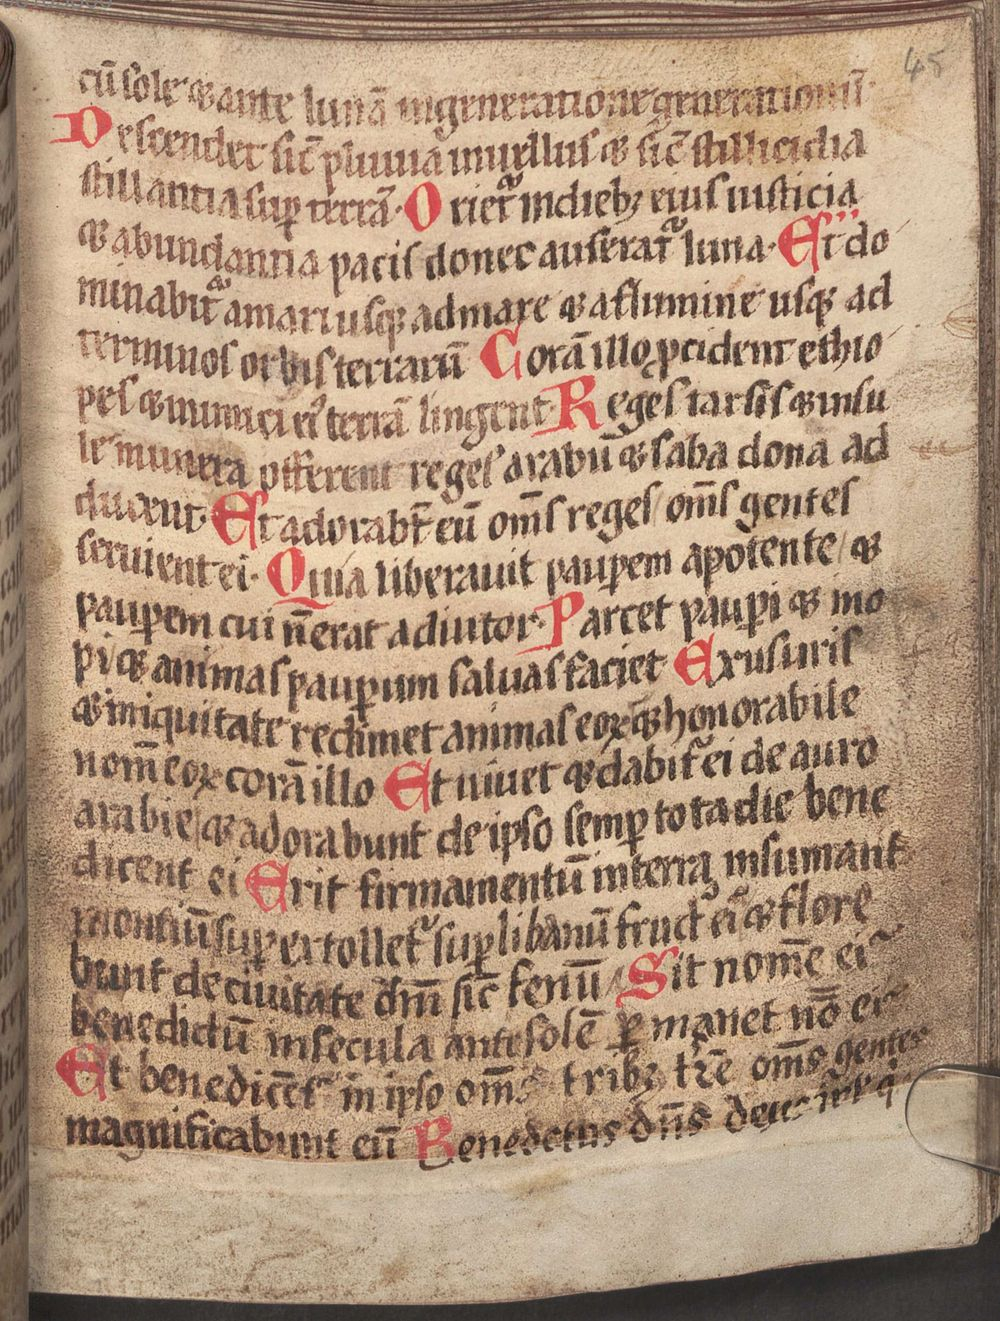 45
cū sole ⁊ ante lunā in generatione generationū
Descendet sic̄ pluuia in uellus ⁊ sic̄ stillicidia
stillantia sup̄ terrā. Orietᷣ in dieb; eius iusticia
⁊ abundantia pacis donec auferatᷣ luna. Et do
minabitᷣ a mari usq; ad mare ⁊ a flumine usq; ad
terminos orbis terrarū Corā illo ꝓcident ethio
pes ⁊ inimici eiꝰ terrā lingent. Reges tarsis ⁊ insu
le munera offerent reges arabū ⁊ saba dona ad
ducent. Et adorabt̄ eū om̄s reges om̄s gentes
seruient ei. Quia liberauit pauꝑem a potente ⁊
pauꝑem cui n̄ erat adiutor. Parcet pauꝑi ⁊ ino
pi ⁊ animas pauꝑum saluas faciet Ex usuris
⁊ iniquitate redimet animas eoꝝ ⁊ honorabile
nom̄ eoꝝ corā illo Et uiuet ⁊ dabit̄ ei de auro
arabie ⁊ adorabunt de ipso semꝑ tota die bene
dicent ei Erit firmamentū in terra in sumant̄
montiū suꝑextolletᷣ suꝑ libanū fructꝰ eiꝰ ⁊ flore
bunt de ciuitate sic̄ fenū Sit nom̄e eiꝰ
benedictū in secula ante solē ꝑmanet nō eiꝰ
Et benedicētᷣ in ipso om̄s trib; tr̄e om̄s gentes
magnificabunt eū Benedctus dn̄s deus isrl̄ q̇